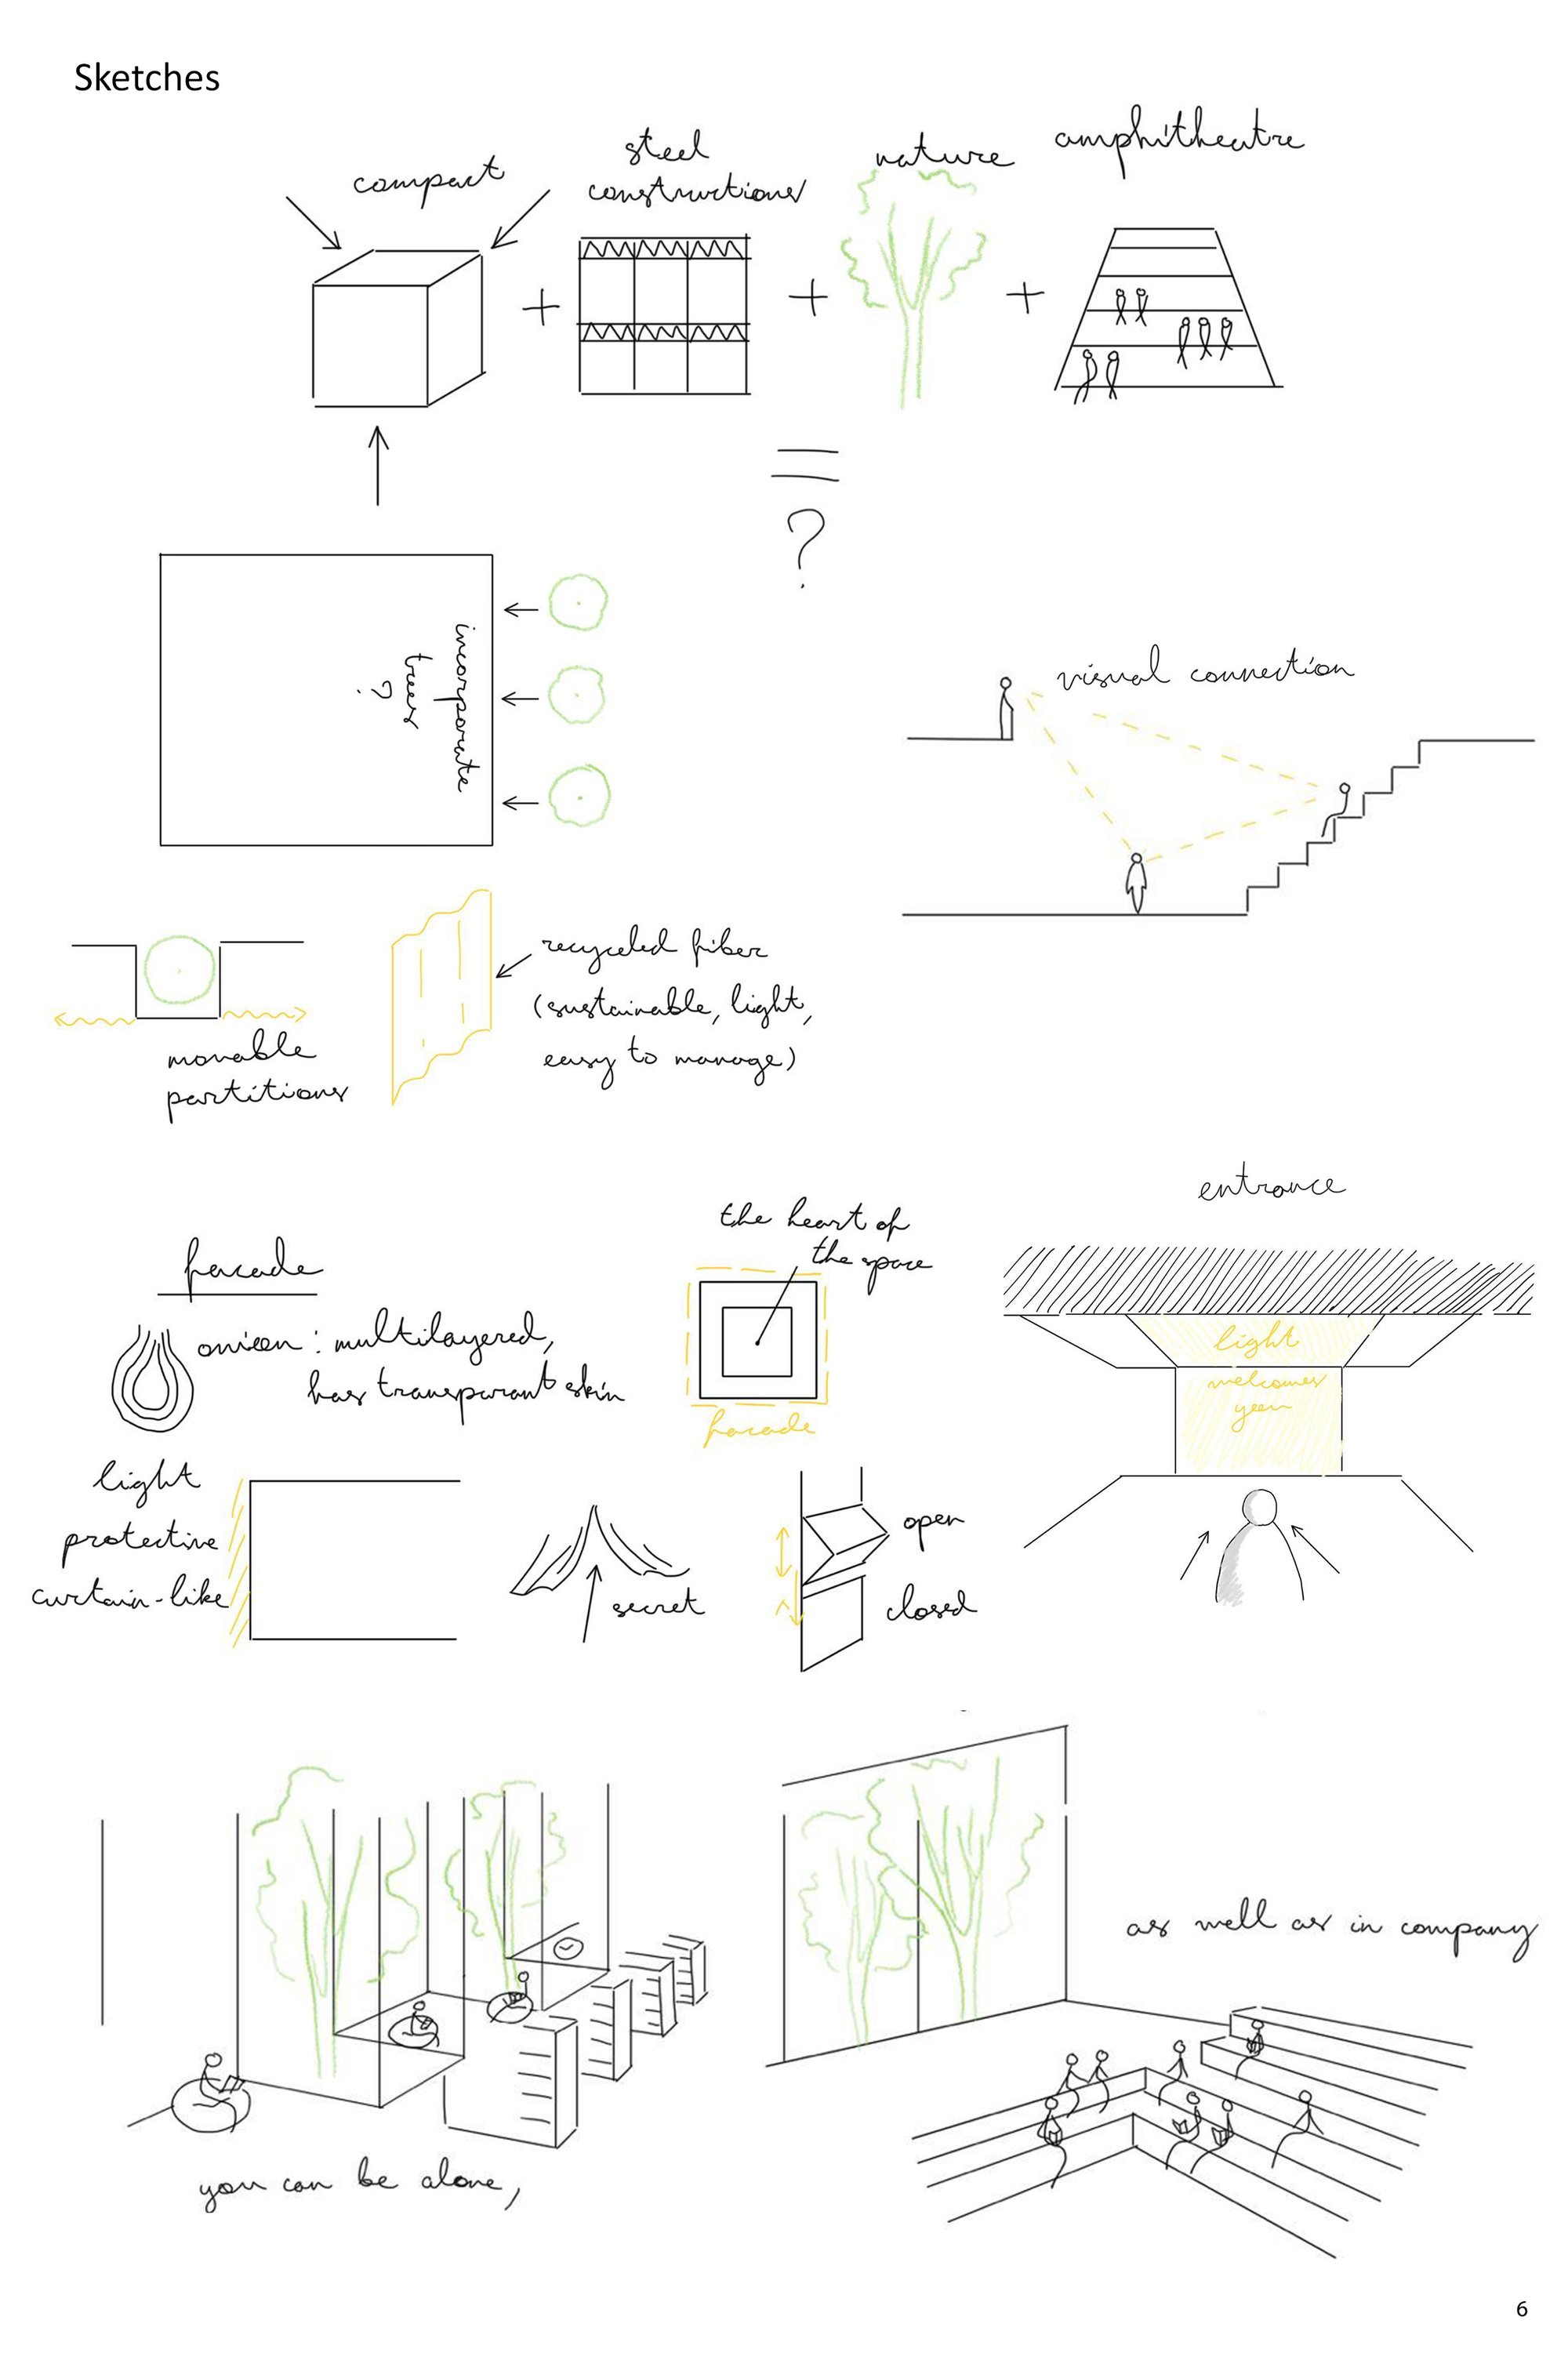 Sketches
compact
steel
constructions
nature
amphitheatre
+
+
+
=
?
incorporate
trees
?
visual connection
movable
partitions
recycled fiber
(sustainable, light,
easy to manage)
entrance
light
welcomes
you
facade
onion: multilayered,
has transparant skin
the heart of
the space
facade
light
protective
curtain-like
secret
open
closed
you can be alone,
as well as in company
6